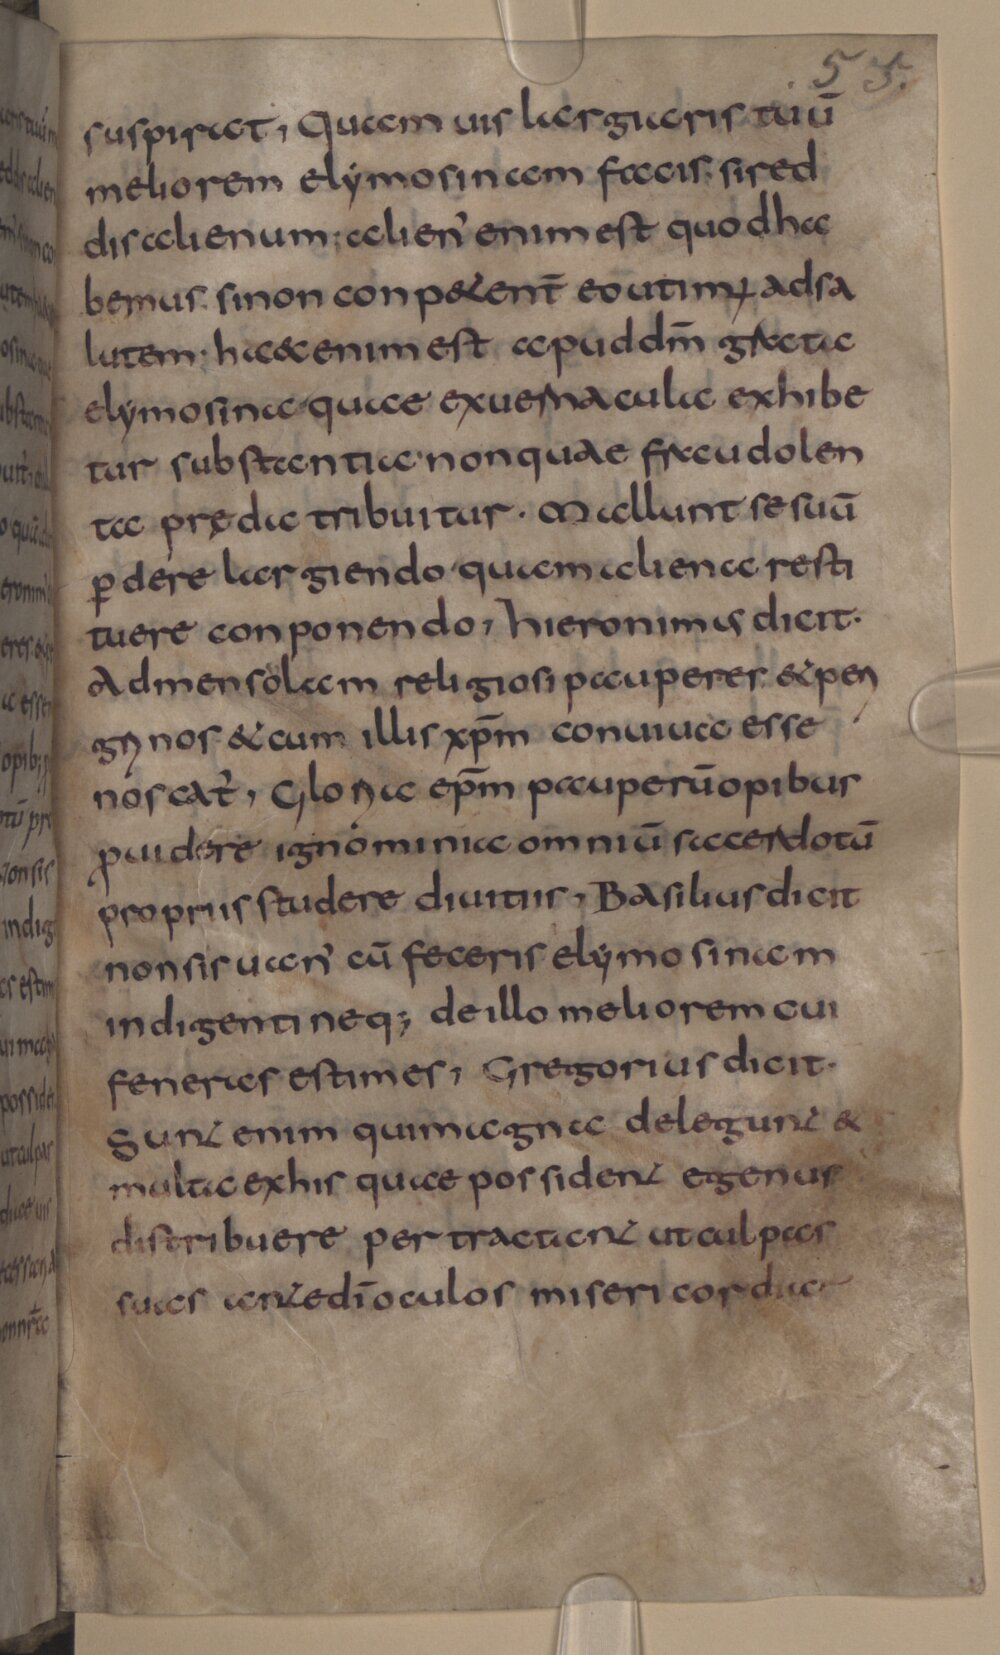 53.
suspirat, Quam uis largiaris tuū
meliorem elymosinam facis. sired
dis alienum. alien̄ enim est quod ha
bemus. sinon conpetent̄ eo utimur adsa
lutem. haec enim est apud dm̄ grata
elymosina quae exuernacula exhibe
tur substantia. non quae fraudolen
ta preda tribuitur. Mallunt se suū
ꝑdere largiendo quam aliena resti
tuere conponendo, hieronimus dicit.
Ad mensolam religiosi pauperes & peri
grinos & cum illis xp̄m conuiua esse
noscat, Gloria ep̄m pauperū opibus
ꝓuidere ignominia omniū sacerdotū
propriis studere diuitiis, Basilius dicit
non sis uan̄ cū feceris elymosinam
indigenti neq; de illo meliorem cui
feneras estimes, Gregorius dicit.
Sunt enim qui magna delegunt &
multa exhis quae possident egenus
distribuere pertractant ut culpas
suas ante dī oculos misericordiae